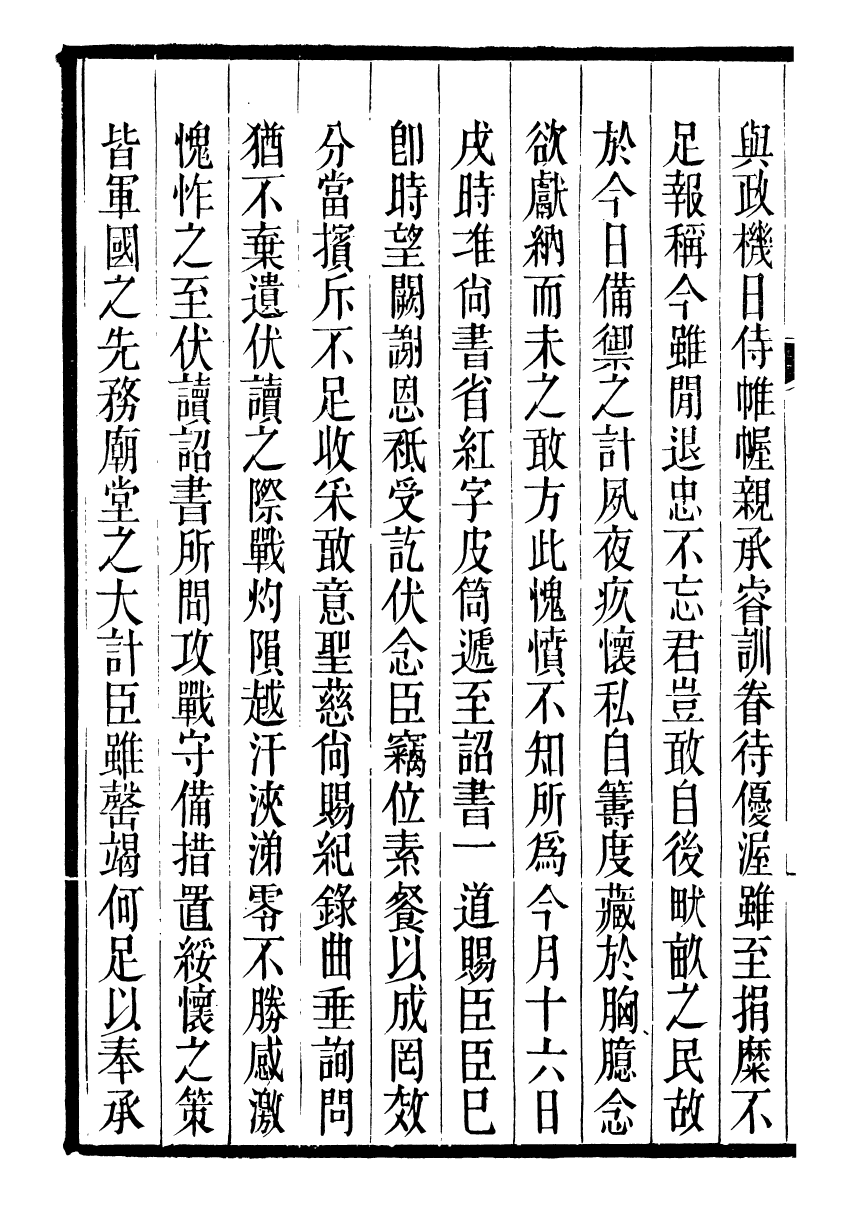 與政機日侍帷幄親承睿訓眷待優渥雖至捐糜不
足報稱今雖閒退忠不忘君豈敢自後畎畝之民故
於今日備禦之計夙夜疚懷私自籌度藏於胸臆念
欲獻納而未之敢方此愧憤不知所爲今月十六日
戌時准尙書省紅字皮筒遞至詔書一道賜臣臣已
卽時望闕謝恩祇受訖伏念臣竊位素餐以成罔效
分當擯斥不足收采敢意聖慈尙賜紀錄曲垂詢問
猶不棄遺伏讀之際戰灼隕越汗浹涕零不勝感激
愧怍之至伏讀詔書所問攻戰守備措置綏懷之策
皆軍國之先務廟堂之大計臣雖罄竭何足以奉承